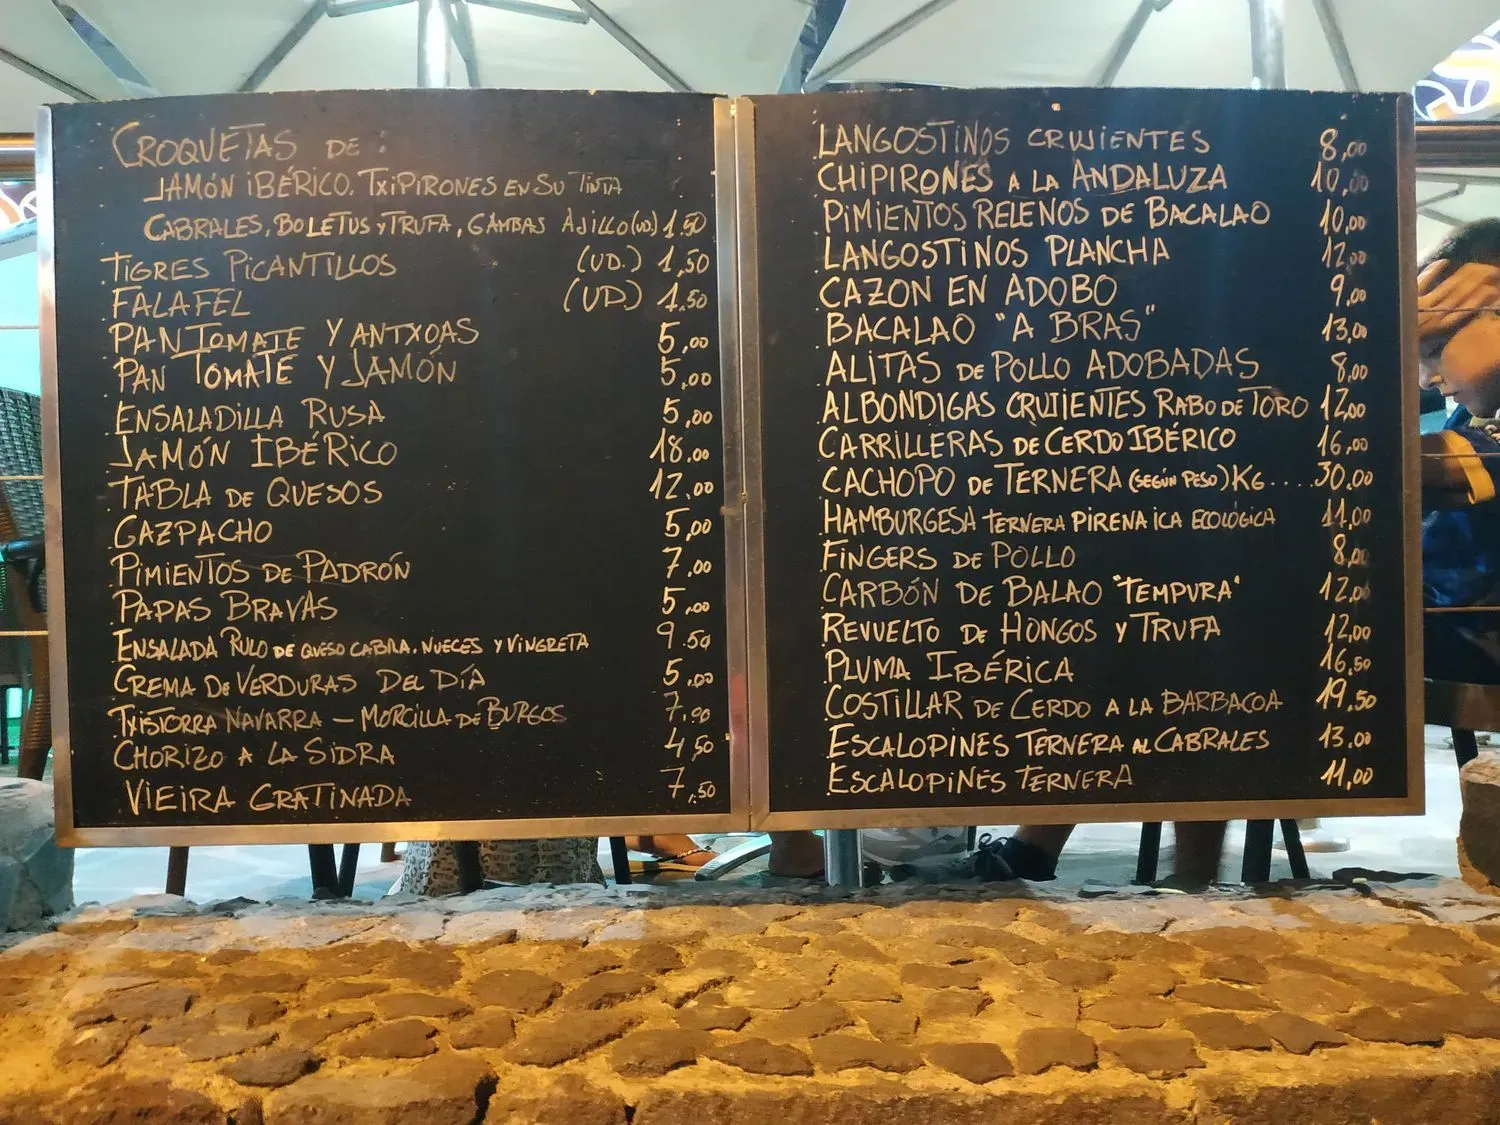 CROQUETAS DE :
JAMÓN IBÉRICO. TXIPIRONES EN SU TINTA
CABRALES, BOLETUS Y TRUFA, GAMBAS AJILLO (UD) 1.50
TIGRES PICANTILLOS (UD.) 1,50
FALAFEL (UD) 1.50
PAN TOMATE Y ANTXOAS 5,00
PAN TOMATE Y JAMÓN 5,00
ENSALADILLA RUSA 5,00
JAMÓN IBÉRICO 18.00
TABLA DE QUESOS 12.00
GAZPACHO 5,00
PIMIENTOS DE PADRÓN 7.00
PAPAS BRAVAS 5,00
ENSALADA RULO DE QUESO CABRA. NUECES Y VINGRETA 9.50
CREMA DE VERDURAS DEL DÍA 5.00
TXISTORRA NAVARRA - MORCILLA DE BURGOS 7,00
CHORIZO A LA SIDRA 4,50
VIEIRA GRATINADA 7,50
LANGOSTINOS CRUJIENTES 8,00
CHIPIRONES A LA ANDALUZA 10,00
PIMIENTOS RELENOS DE BACALAO 10,00
LANGOSTINOS PLANCHA 12,00
CAZON EN ADOBO 9,00
BACALAO "A BRAS" 13,00
ALITAS DE POLLO ADOBADAS 8,00
ALBONDIGAS CRUJIENTES RABO DE TORO 12,00
CARRILLERAS DE CERDO IBÉRICO 16,00
CACHOPO DE TERNERA (SEGÚN PESO) KG....30.00
HAMBURGESA TERNERA PIRENAICA ECOLÓGICA 11,00
FINGERS DE POLLO 8,00
CARBÓN DE BALAO "TEMPURA" 12,00
REVUELTO DE HONGOS Y TRUFA 12,00
PLUMA IBÉRICA 16,50
COSTILLAR DE CERDO A LA BARBACOA 19,50
ESCALOPINES TERNERA AL CABRALES 13.00
ESCALOPINES TERNERA 11,00